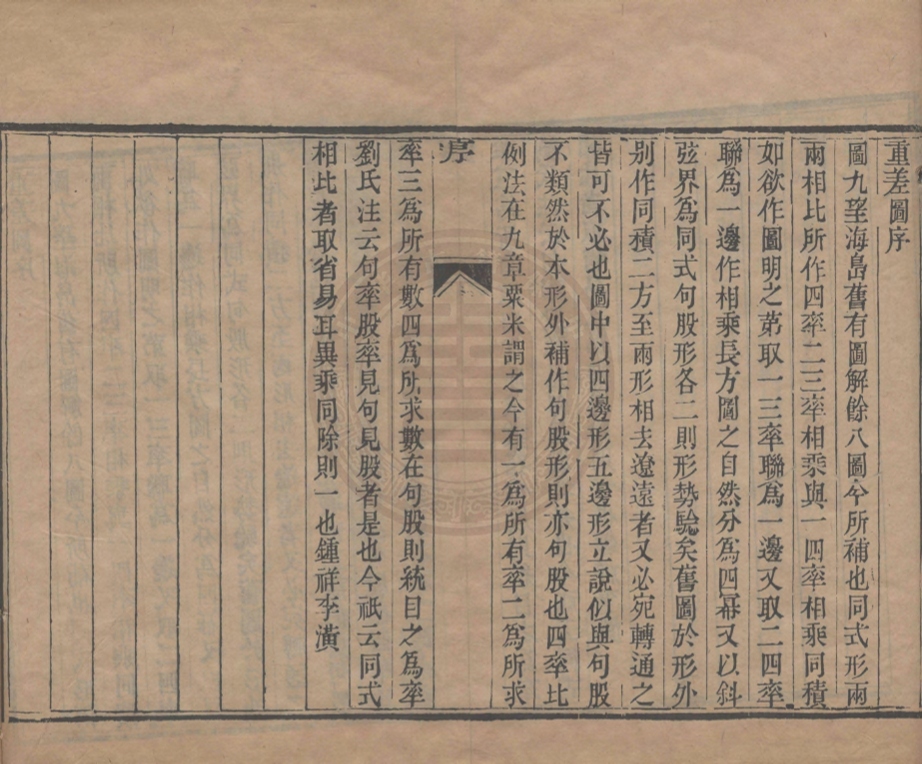 重差圖序
圖九望海島舊有圖解餘八圖今所補也同式形兩
兩相比所作四率二三率相乘與一四率相乘同積
如欲作圖明之第取一三率聯爲一邊又取二四率
聯爲一邊作相乘長方圖之自然分爲四冪又以斜
弦界爲同式句股形各二則形勢驗矣舊圖於形外
别作同積二方至兩形相去遼遠者又必宛轉通之
皆可不必也圖中以四邊形五邊形立說似與句股
不類然於本形外補作句股形則亦句股也四率比
例法在九章粟米謂之今有一爲所有率二爲所求
序
率三爲所有數四爲所求數在句股則統目之爲率
劉氏注云句率股率見句見股者是也今祇云同式
相比者取省易耳異乘同除則一也鍾祥李潢